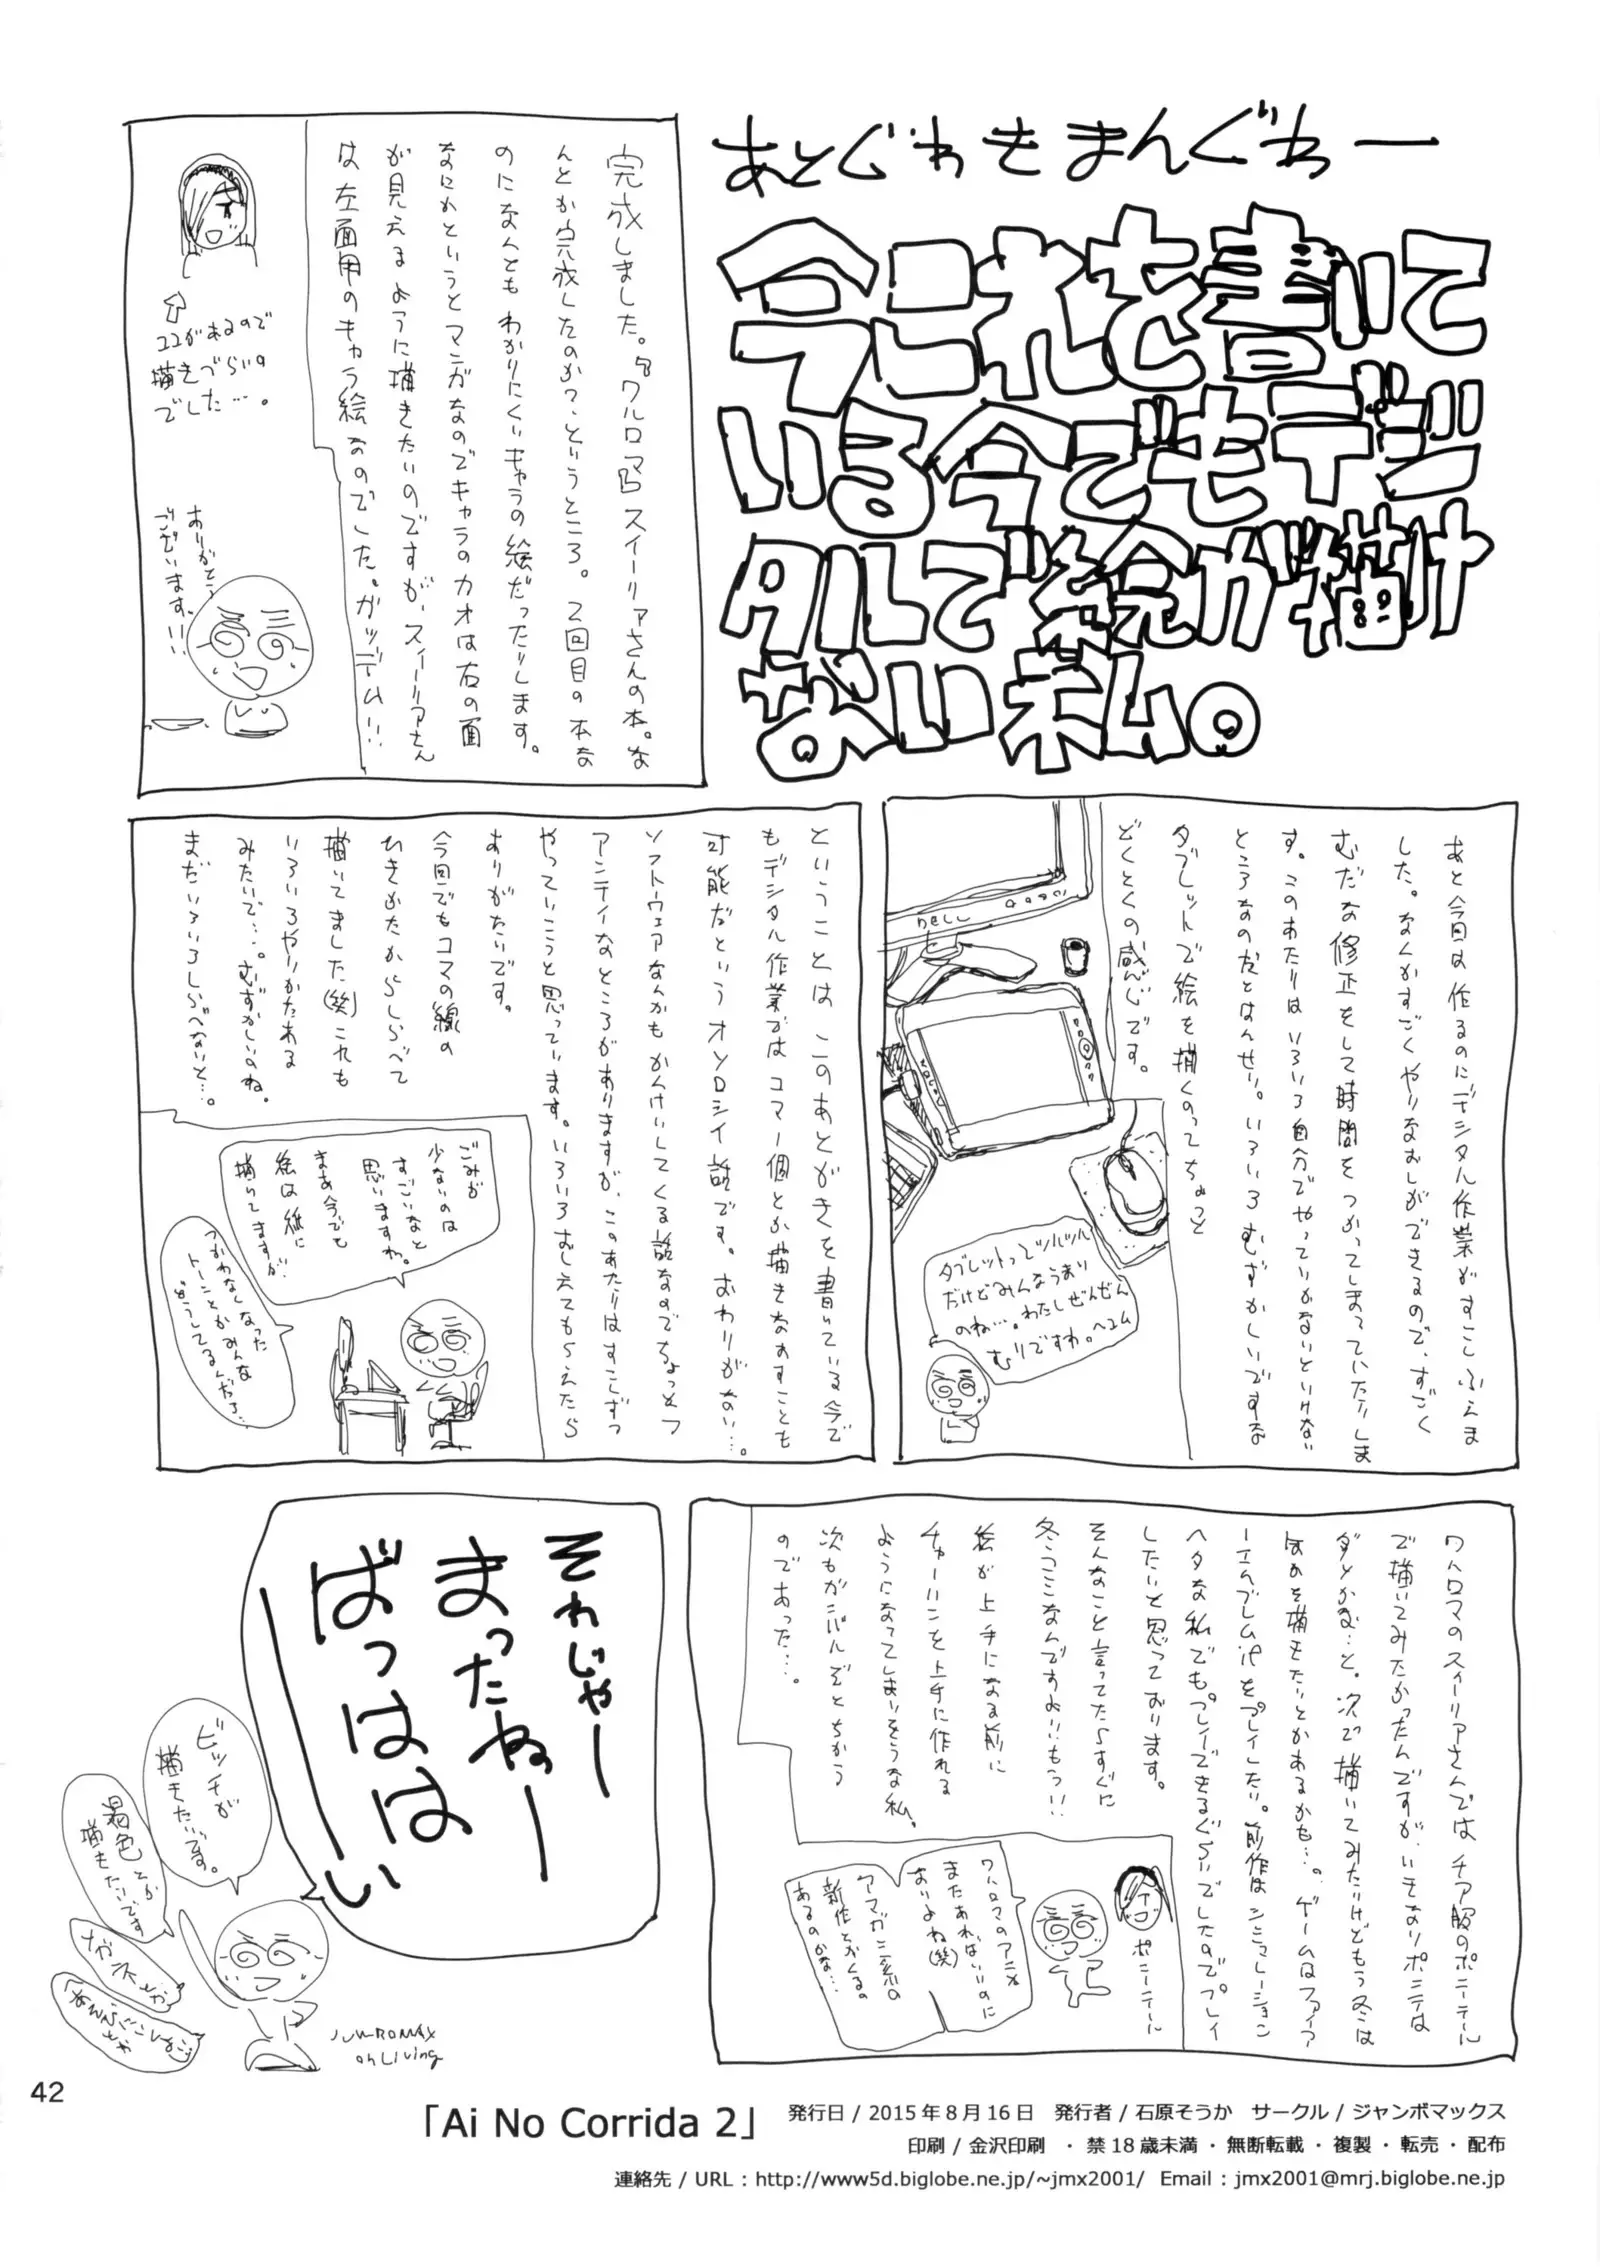 あとぐわきまんぐわー
今これを書いて
いる今でもデジ
タルで絵が描け
ない私。
完成しました。『ワルロマ』スイーリアさんの本。な
んとか完成したのか?というところ。2回目の本な
のになんともわかりにくいキャラの絵だったりします。
なにかというとマンガなのでキャラのカオは右の面
が見えるように描きたいのですが、スイーリアさん
は左面用のキャラ絵なのでした。ガッデム!!
ココがあるので
描きづらいの
でした…。
ありがとう
ございます!!
あと今回は作るのにデジタル作業がすこしふえま
した。なんかすごくやりなおしができるので、すごく
むだな修正をして時間をつかってしまっていたりしま
す。このあたりはいろいろ自分でやっていかないといけない
ところなのだとはんせい。いろいろむずかしいですな
タブレットで絵を描くのってちょっと
どくとくの感じです。
DELL
タブレットってツルツル
だけどみんなうまい
のね…。わたしぜんぜん
むりですわ。ヘユム
ということはこのあとがきを書いている今で
もデジタル作業ではコマ一個とか描きなおすことも
可能だというオソロシイ話です。おわりがない…。
ソフトウェアなんかもかんけいしてくる話なのでちょっとフ
アンティーなところがありますが、このあたりはすこしずつ
やっていこうと思っています。いろいろおしえてもらえたら
ありがたいです。
今回でもコマの線の
ひきかたからしらべて
描いてました(笑)これも
いろいろやりかたある
みたいで…。むずかしいのね。
まだいろいろしらべないと…。
ごみが
少ないのは
すごいなと
思いますわ。
まあ今でも
絵は紙に
描いてますが
つかわなくなった
トーンとかみんな
どうしてるんだろ…
ワルロマのスイーリアさんではチア服のポニーテール
で描いてみたかったんですが、いきなりポニテは
ダメかな…と。次で描いてみたいけどもう冬は
べつのを描きたいとかあるかも…。ゲームはファイア
ーエムブレムifをプレイしたい。前作はシミュレーション
ヘタな私でもプレイできるぐらいでしたのでプレイ
したいと思っております。
そんなこと言ってたらすぐに
冬コミなんですよ!!もう!!
絵が上手になる前に
チャーハンを上手に作れる
ようになってしまいそうな私、
次もガンバルぞとちかう
のであった…。
ポニーテール
ワルロマのアニメ
またあればいいのに
ないよね(笑)
アマガミ系の
新作とかくるの
あるのかな…
それじゃー
まったねー
ばっはは
ーい
ビッチが
描きたいです。
褐色とか
描きたいです
メガネとか
JUMBOMAX
on Living
42
「Ai No Corrida 2」 発行日 / 2015年8月16日 発行者 / 石原そうか サークル / ジャンボマックス
印刷 / 金沢印刷 ・禁18歳未満・無断転載・複製・転売・配布
連絡先 / URL : http://www5d.biglobe.ne.jp/~jmx2001/ Email : jmx2001@mrj.biglobe.ne.jp